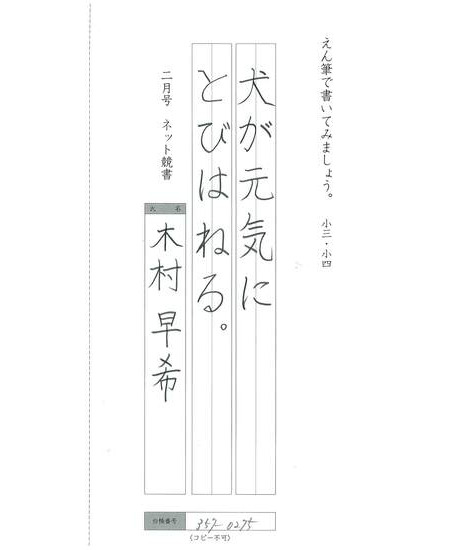 えん筆で書いてみましょう。 小三・小四
犬が元気に
とびはねる。
二月号 ネット競書
氏 名
木村 早希
会員番号 357-0275
(コピー不可)